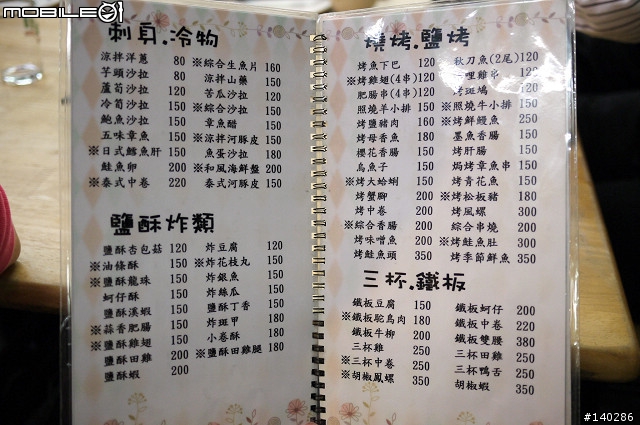 MOBILE01
刺身.冷物
涼拌洋蔥 80
芋頭沙拉 80
蘆筍沙拉 120
冷筍沙拉 150
鮑魚沙拉 150
五味章魚 150
※日式鱈魚肝 150
鮭魚卵 200
※泰式中卷 220
※綜合生魚片 160
涼拌山藥 150
苦瓜沙拉 120
※綜合沙拉 150
章魚醋 150
※涼拌河豚皮 150
魚蛋沙拉 180
※和風海鮮盤 200
泰式河豚皮 150
鹽酥炸類
鹽酥杏包菇 120
※油條酥 150
※鹽酥龍珠 150
蚵仔酥 150
鹽酥溪蝦 150
※蒜香肥腸 150
※鹽酥雞翅 150
鹽酥田雞 200
鹽酥蝦 200
炸豆腐 120
※炸花枝丸 150
炸銀魚 150
炸絲瓜 150
鹽酥丁香 150
炸斑甲 180
小卷酥 180
※鹽酥田雞腿 180
燒烤.鹽烤
烤魚下巴 120
※烤雞翅(4串) 120
肥腸串(4串) 120
照燒羊小排 150
烤鹽豬肉 160
烤母香魚 180
櫻花香腸 150
烏魚子 150
※烤大蛤蜊 150
烤蟹腳 200
烤中卷 200
※綜合香腸 200
烤味噌魚 200
烤鮭魚頭 350
秋刀魚(2尾) 120
哩雞串 120
烤斑鳩 120
※照燒牛小排 150
※烤鮮鰻魚 250
墨魚香腸 150
烤肝腸 150
焗烤章魚串 150
烤青花魚 150
※烤松板豬 180
烤風螺 300
綜合串燒 200
※烤鮭魚肚 300
烤季節鮮魚 350
三杯.鐵板
鐵板豆腐 150
※鐵板鴕鳥肉 180
鐵板牛柳 200
三杯雞 250
※三杯中卷 250
※胡椒鳳螺 350
鐵板蚵仔 200
鐵板中卷 220
鐵板雙腰 380
三杯田雞 250
三杯鴨舌 250
胡椒蝦 350
#140286